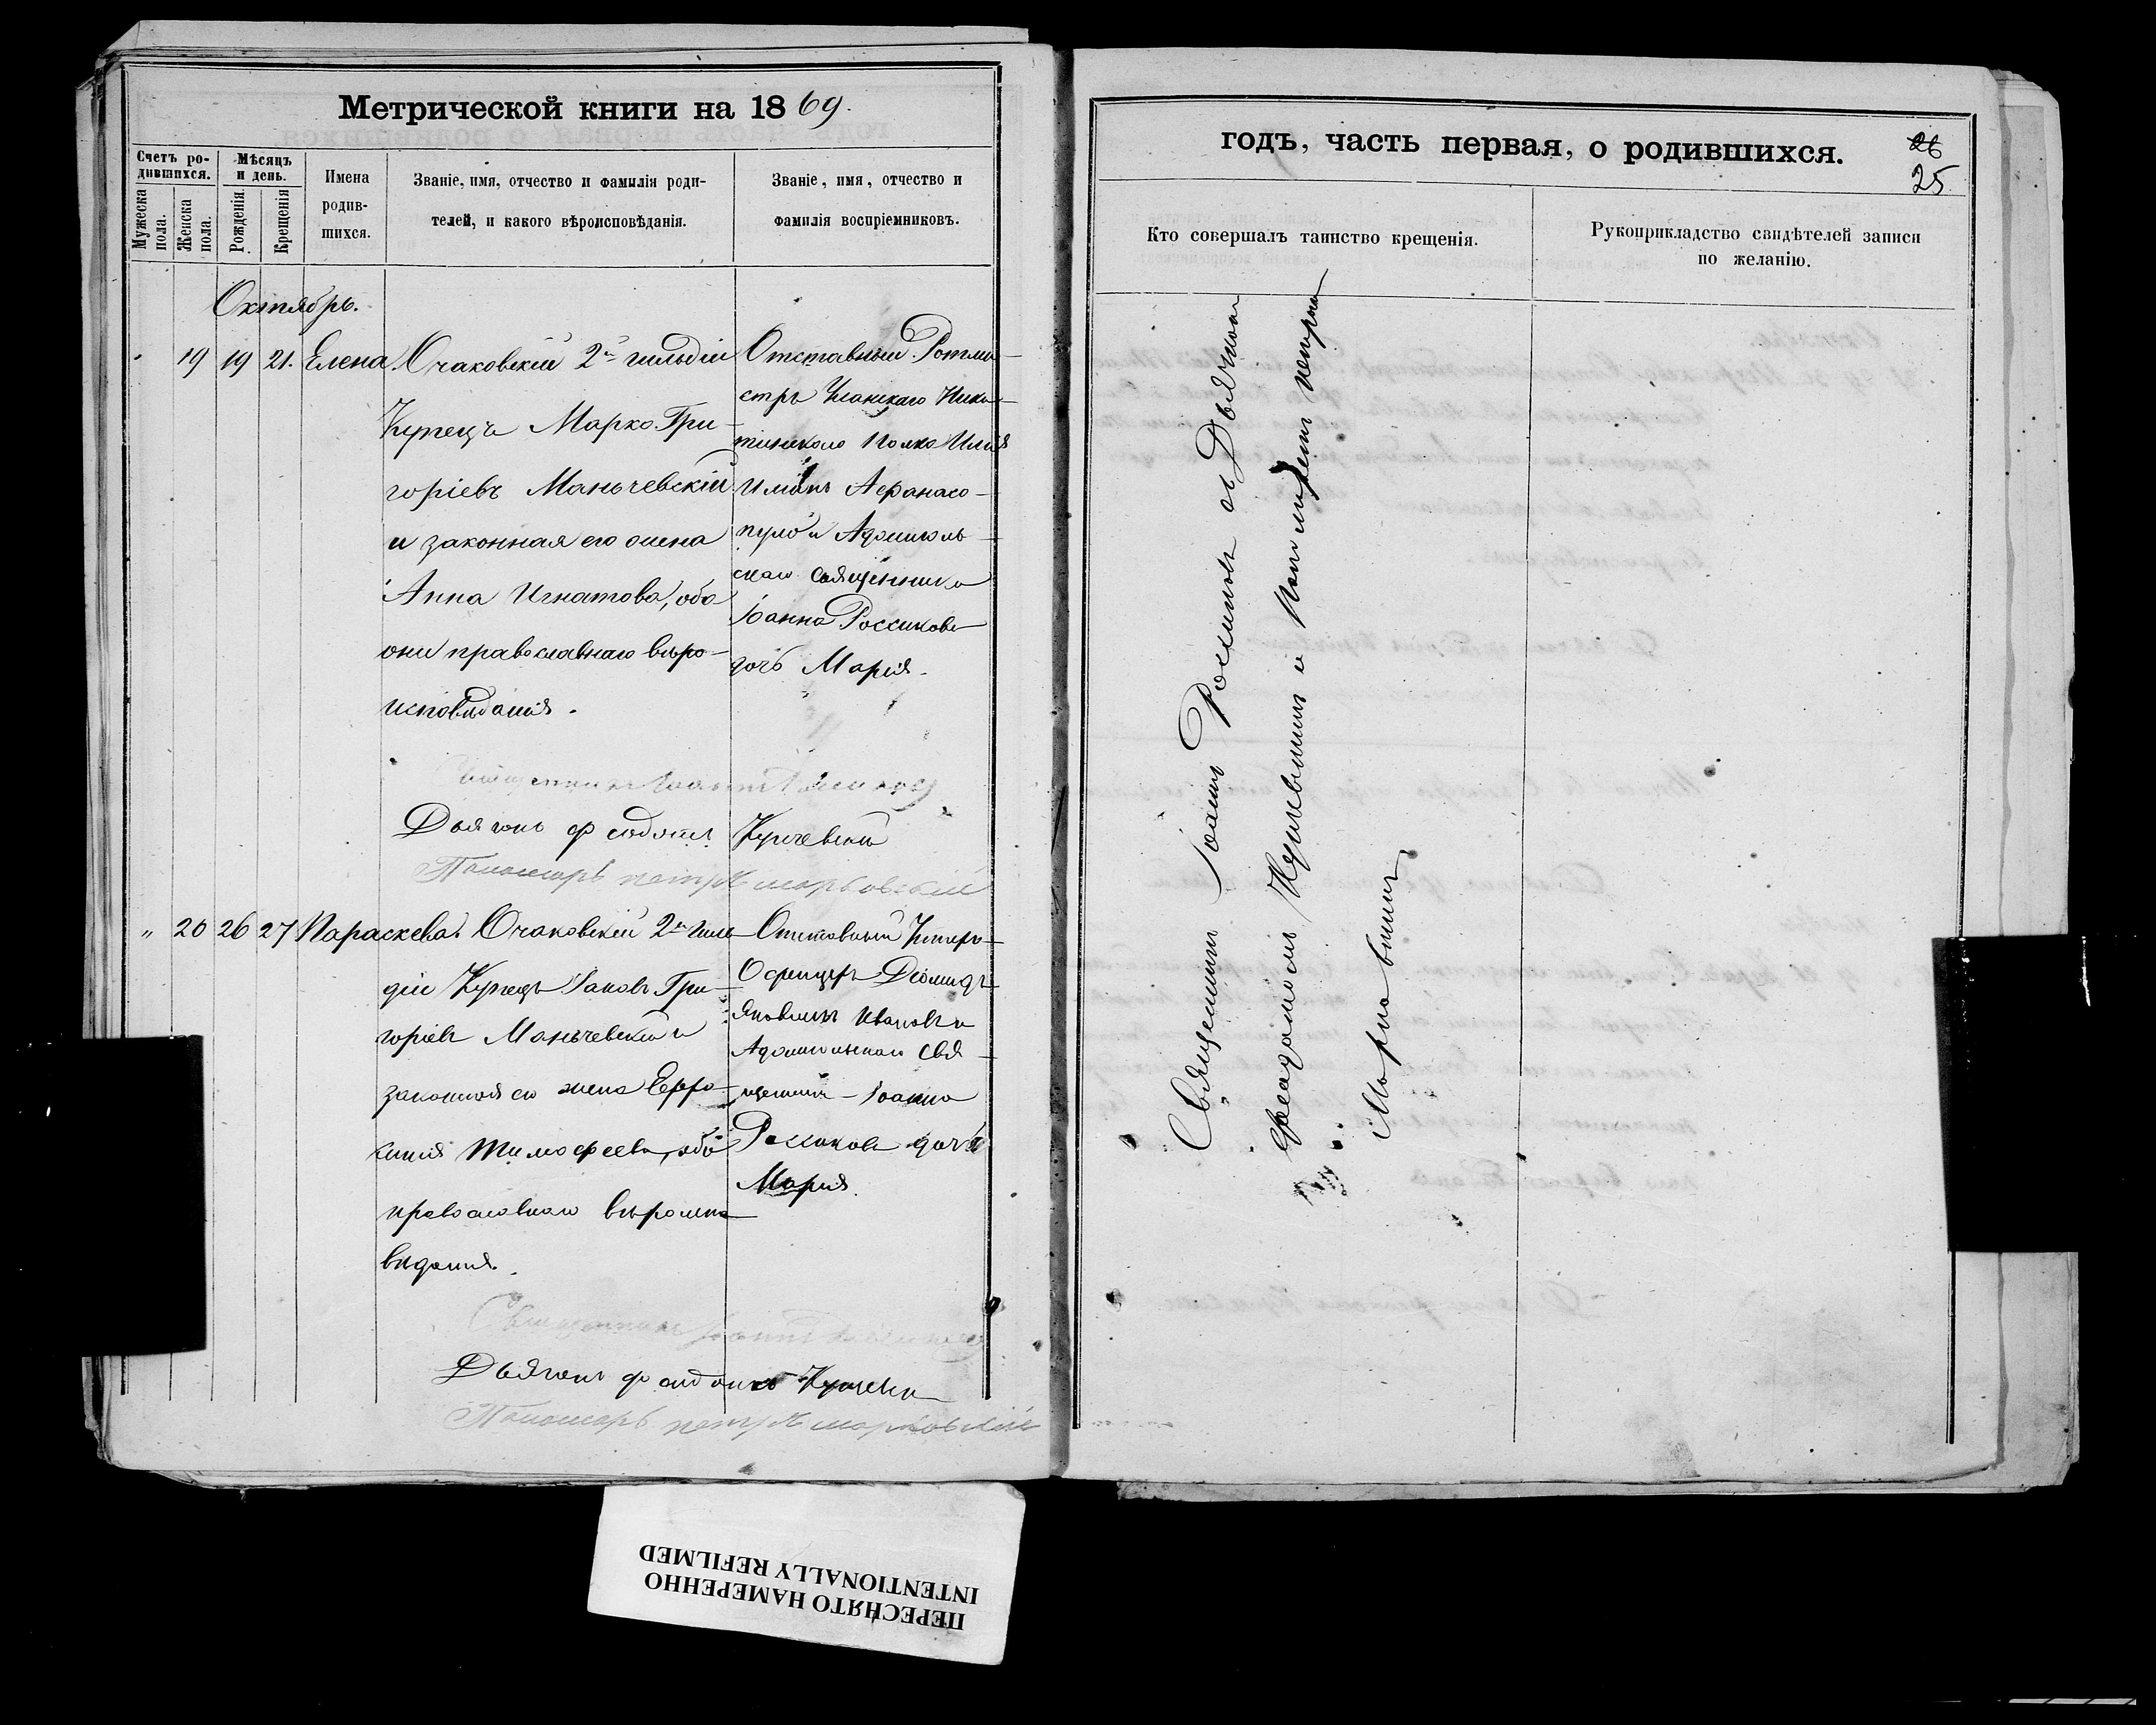 Метрической книги на 1869.
Счетъ ро-
дившихся.
Мѣсяцъ
и день.
Мужеска
пола.
Женска
пола.
Рожденія.
Крещенія
Имена
родив-
шихся.
Званіе, имя, отчество и фамилія роди-
телей, и какого вѣроисповѣданія.
Званіе, имя, отчество и
фамилія воспріемниковъ.
Октябрь.
19 19 21. Елена.
Очаковскій 2й гильдіи
Купецъ Марко Гри-
горіевъ Маньчевскій
и законная его жена
Анна Игнатова, оба
они православнаго вѣро-
исповѣданія.
Отставный Ротми-
стръ Уланскаго
полка Илія
Афанасо-
пуло и
скаго священника
Іоанна Россикова
дочь Марія.
Священникъ Іоаннъ
Дьячокъ Феодотъ Купчевскій
Пономарь Петръ Марковскій
„ 20 26 27 Параскева.
Очаковскій 2й гиль-
діи Купецъ Іаковъ Гри-
горіевъ Маньчевскій и
законная его жена Евфро-
синія Тимофеева, оба
православнаго вѣроиспо-
вѣданія.
Отставный Унтеръ-
Офицеръ Діомидъ
Яковлевъ Ивановъ и
свя-
щенника Іоанна
Россикова дочь
Марія.
Священникъ Іоаннъ
Дьячокъ Феодотъ
Пономарь Петръ Марковскій
годъ, часть первая, о родившихся.
26
25
Кто совершалъ таинство крещенія.
Рукоприкладство свидѣтелей записи
по желанію.
Священникъ Іоаннъ Россиковъ съ Дьячкомъ
Феодотомъ и Пономаремъ Петромъ
ПЕРЕСНЯТО НАМЕРЕННО
INTENTIONALLY REFILMED